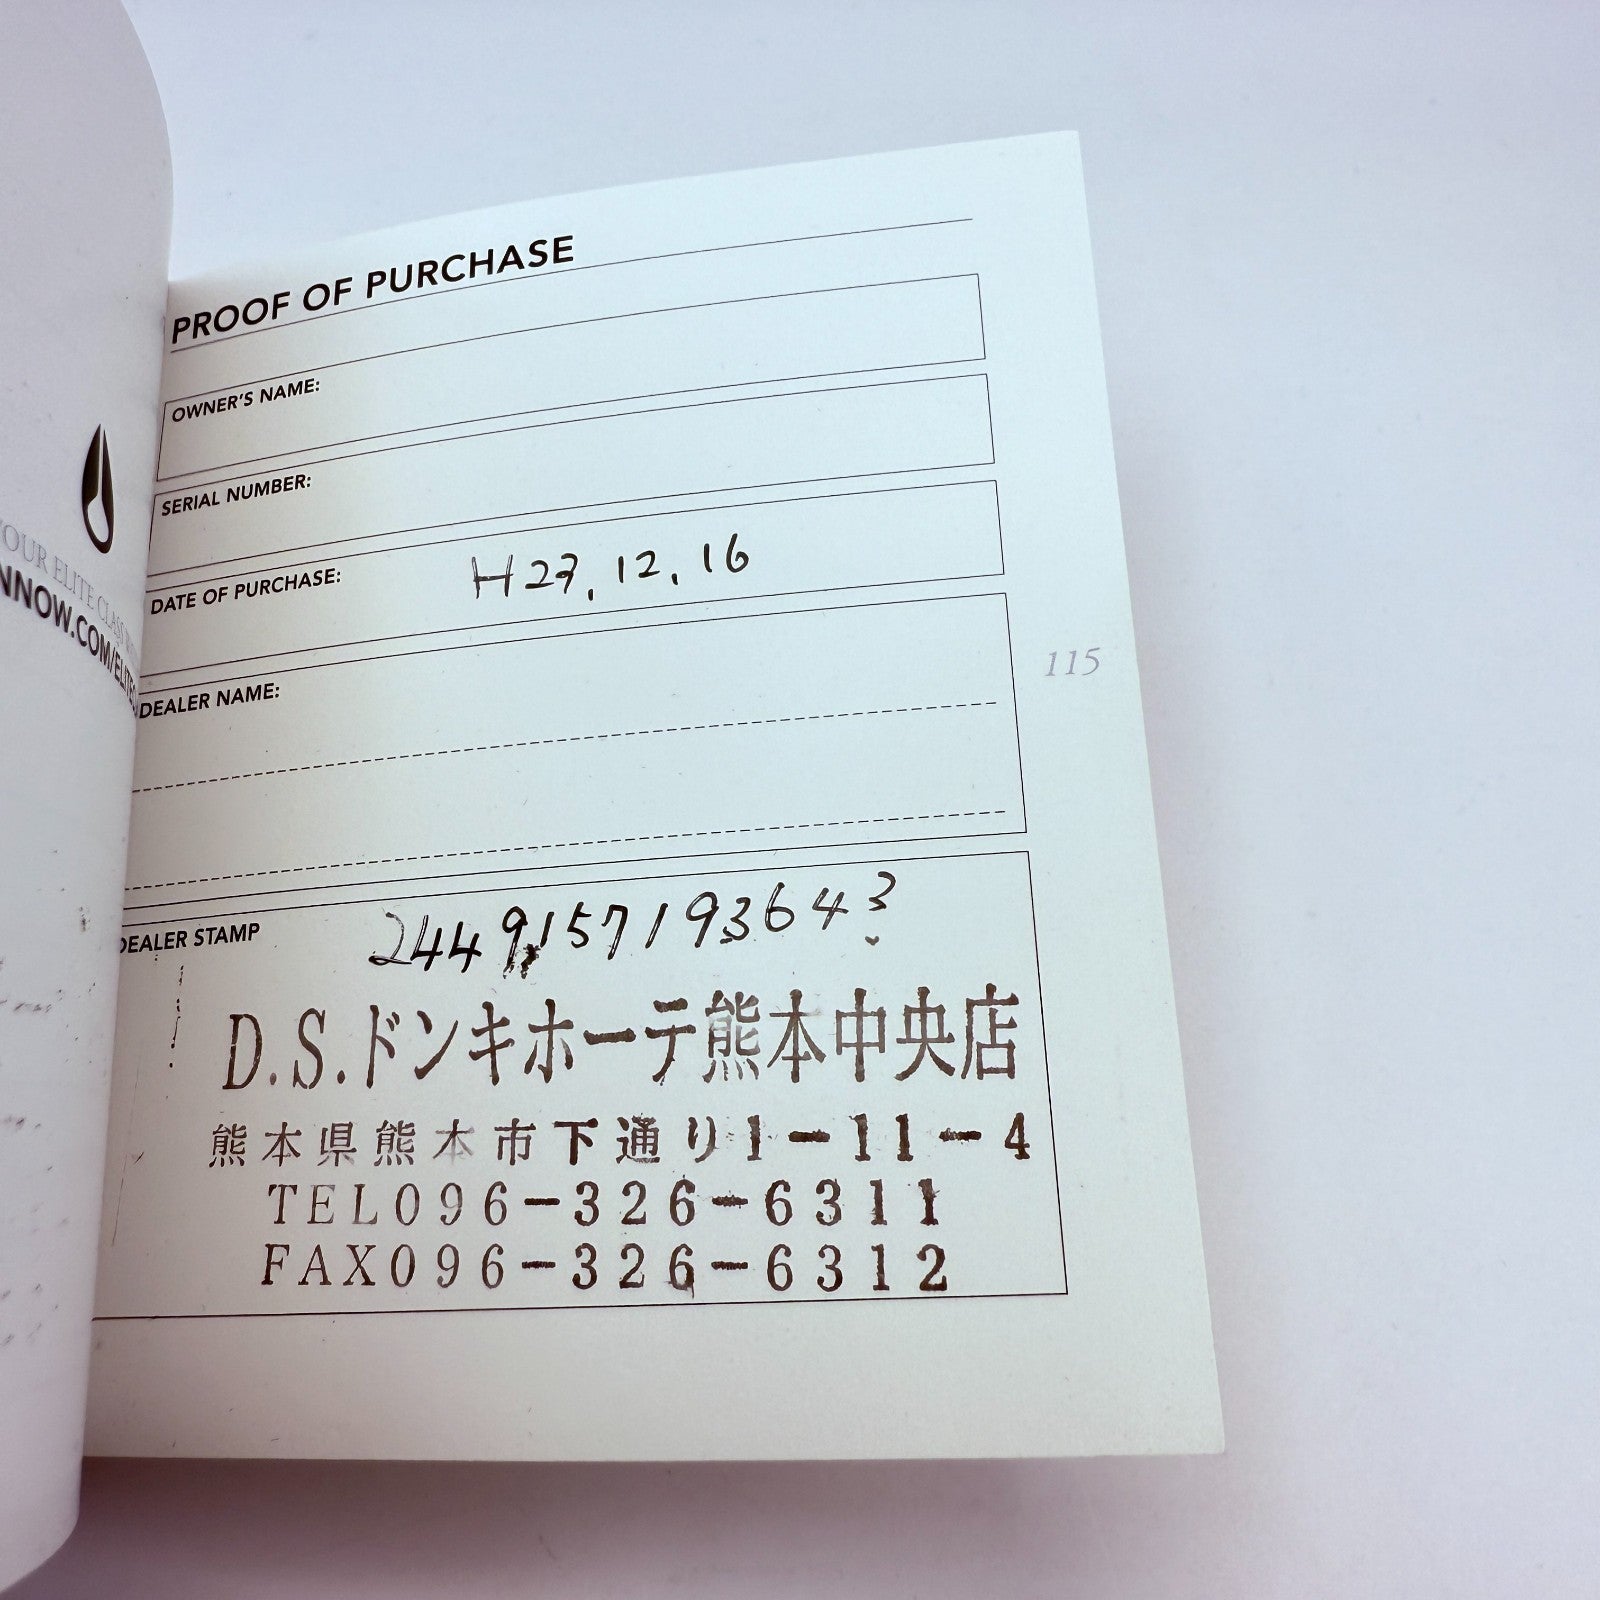 OUR ELITE CLASS
NNOW.COM/ELITE
PROOF OF PURCHASE
OWNER'S NAME:
SERIAL NUMBER:
DATE OF PURCHASE: H27.12.16
DEALER NAME:
115
DEALER STAMP
2449157193643
D.S.ドンキホーテ熊本中央店
熊本県熊本市下通り1-11-4
TEL096-326-6311
FAX096-326-6312